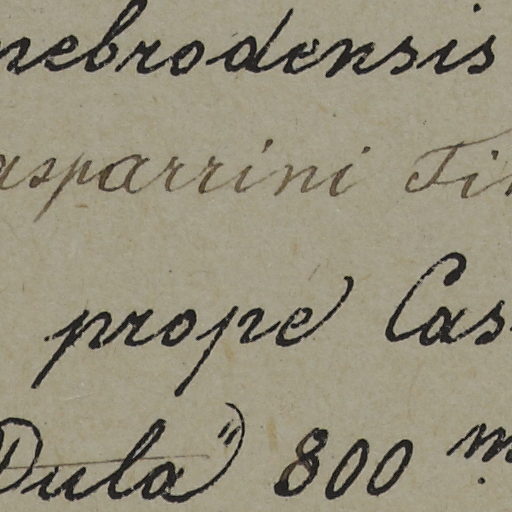 nebrodensis
asparrini Ti
prope Cas
Dula") 800 m.